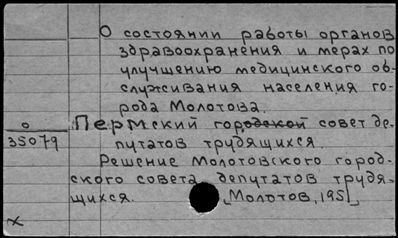 О состоянии работы органов
здравоохранения и мерах по
улучшению медицинского об-
служивания населения го-
рода Молотова.
О
35079
Пермский городской совет де-
путатов трудящихся.
Решение Молотовского город-
ского совета депутатов трудя-
щихся. [Молотов, 195]
х